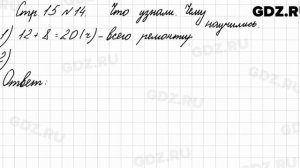 Стр. 15 № 14. Что узнали. Чему
научились
1) 12 + 8 = 20 (ч) - всего ремонту
2)
Ответ: